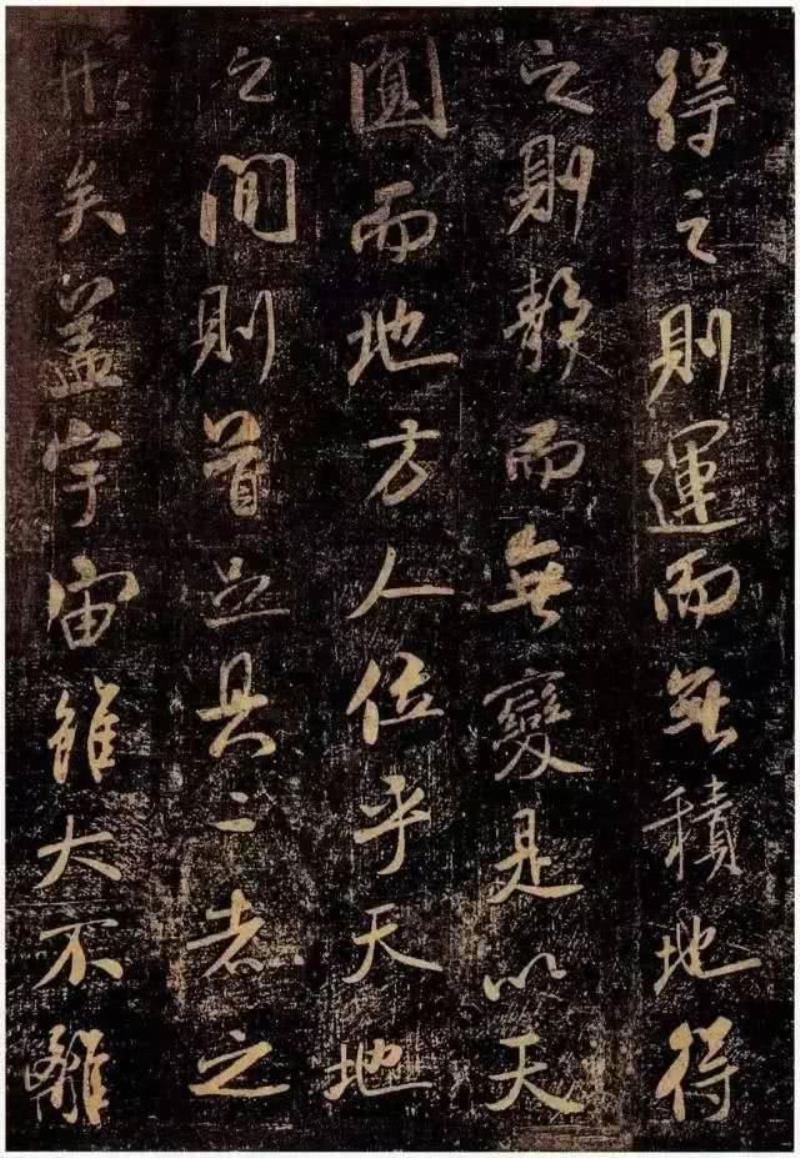 得之則運而無積地得
之則静而無變是以天
圓而地方人位乎天地
之間則首足具二者之
形矣蓋宇宙雖大不離